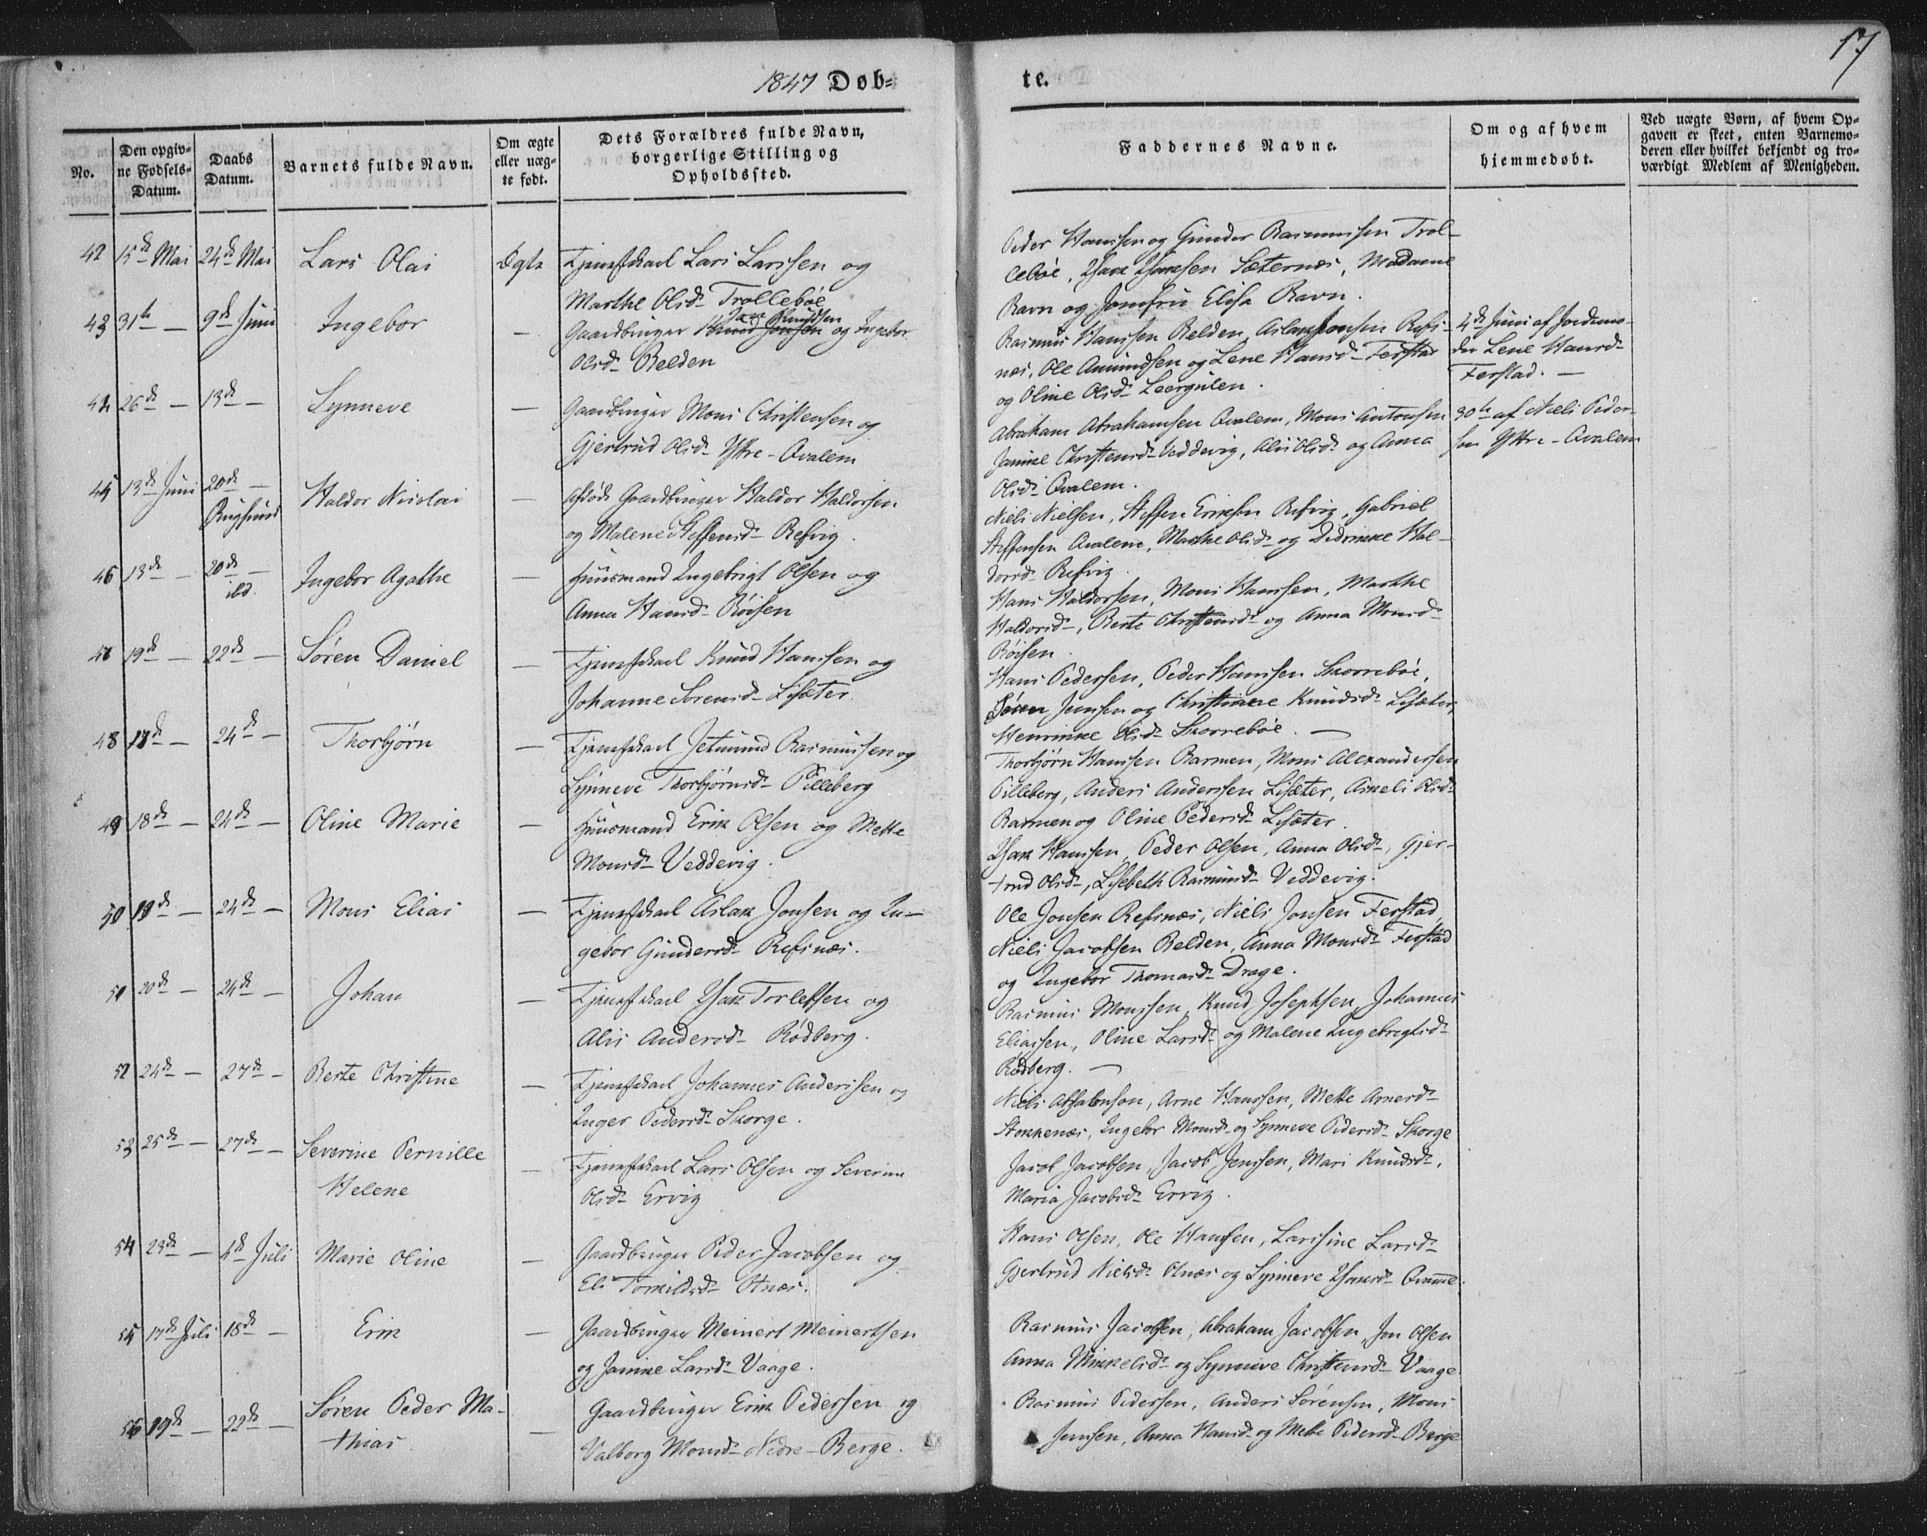 1847 Døb-
te.
17
No.
Den opgiv-
ne Fødsels-
Datum.
Daabs
Datum.
Barnets fulde Navn.
Om ægte
eller uæg-
te født.
Dets Forældres fulde Navn,
borgerlige Stilling og
Opholdssted.
Faddernes Navne.
Om og af hvem
hjemmedøbt.
Ved uægte Børn, af hvem Op-
gaven er skeet, enten Barnemo-
deren eller hvilket bekjendt og tro-
værdigt Medlem af Menigheden.
42 15de Mai 24de Mai Lars Olai Ægte
Lars Larssen og
Marthe Olsd. Trollebøe
Peder Hanssen og Gunder Rasmussen Trol-
lebøe, Isak Isaksen Sæternæs, Madame
Ravn og Jomfru Elisa Ravn.
43 31te — 9de Juni Ingebor —
Jon Knudsen
Gaardbruger Knud Jonsen og Ingebor
Olsd. Belden
Rasmus Hanssen Belden, Aslak Jonsen Refs-
næs, Ole Amundsen og Lene Hansd. Ferstad
og Oline Olsd. Leergulen.
4de Juni af Jordemo-
der Lene Hansd.
Ferstad. —
44 26de — 13de — Synneve —
Gaardbruger Mons Christensen og
Gjertrud Olsd. Ytre-Qvalem
Abraham Abrahamsen Qvalem, Mons Antonsen
Janike Christensd. Veddevig, Alis Olsd. og Anna
Olsd. Qvalem.
30te af Niels Peder-
sen Ytre-Qvalem
45 13de Juni 20de —
Rugsund
Haldor Nicolai —
Gaardbruger Haldor Haldorsen
og Malene Steffensd. Refvig.
Niels Nielsen, Steffen Eriksen Refvig, Gabriel
Steffensen Qvalem, Marthe Olsd. og Didrikke Hal-
dorsd. Refvig.
46 13de — 20de —
ibd.
Ingebor Agathe —
Huusmand Ingebrigt Olsen og
Anna Hansd. Röisen
Hans Haldorsen, Mons Hanssen, Marthe
Haldorsd., Berte Christensd. og Anna Monsd.
Röisen.
47 19de — 22de — Søren Daniel —
Knud Hanssen og
Johanne Sørensd. Lisæter
Hans Pedersen, Peder Hanssen Skorrebøe,
Søren Jenssen og Christiane Knudsd. Lisæter,
Henrikke Olsd. Skorrebøe. —
48 17de — 24de — Thorbjørn —
Jetmund Rasmussen og
Synneve Thorbjørnsd. Pilleberg
Thorbjørn Hanssen Barmen, Mons Alexandersen
Pilleberg, Anders Anderssen Lisæter, Olsd.
Barmen og Oline Pedersd. Lisæter.
49 18de — 24de — Oline Marie —
Huusmand Erik Olsen og Mette
Monsd. Veddevig.
Isak Hanssen, Peder Olsen, Anna Olsd., Gjer-
trud Olsd., Lisebeth Rasmusd. Veddevig.
50 19de — 24de — Mons Elias —
Aslak Jonsen og In-
gebor Gundersd. Refsnæs.
Ole Jonsen Refsnæs, Niels Jonsen Ferstad,
Niels Jacobsen Belden, Anna Monsd. Ferstad
og Ingebor Thomasd. Drage.
51 20de — 24de — Johan —
Isak Torlefsen og
Alis Andersd. Rödberg.
Rasmus Monssen, Knud Josephsen, Johannes
Eliassen, Oline Larsd. og Malene Ingebrigtsd.
Rødberg. —
52 24de — 27de — Berte Christine —
Johannes Anderssen og
Inger Pedersd. Skorge.
Niels Absalonsen, Arne Hanssen, Mette Arnesd.
Stokkenæs, Ingebor Monsd. og Synneve Pedersd. Skorge
53 25de — 27de — Severine Pernille
Helene —
Lars Olsen og Severine
Olsd. Ervig
Jacob Jacobsen, Jacob Jenssen, Mari Knudsd.,
Maria Jacobsd. Ervig.
54 23de — 4de Juli Marie Oline —
Gaardbruger Peder Jacobsen og
Eli Torkildsd. Otnæs.
Hans Olsen, Ole Hanssen, Larsine Larsd.
Gjertrud Nielsd. Otnæs og Synneve Isaksd.
55 17de Juli 18de — Erik —
Gaardbruger Meinert Meinertsen
og Janike Larsd. Vaage.
Rasmus Jacobsen, Abraham Jacobsen, Jon Olsen
Anna Mikkelsd. og Synneve Christensd. Vaage
56 19de — 22de — Søren Peder Ma-
thias —
Gaardbruger Erik Pedersen og
Valborg Monsd. Nedre-Berge.
Rasmus Pedersen, Anders Sørensen, Mons
Jenssen, Anna Hansd. og Mette Pedersd. Berge